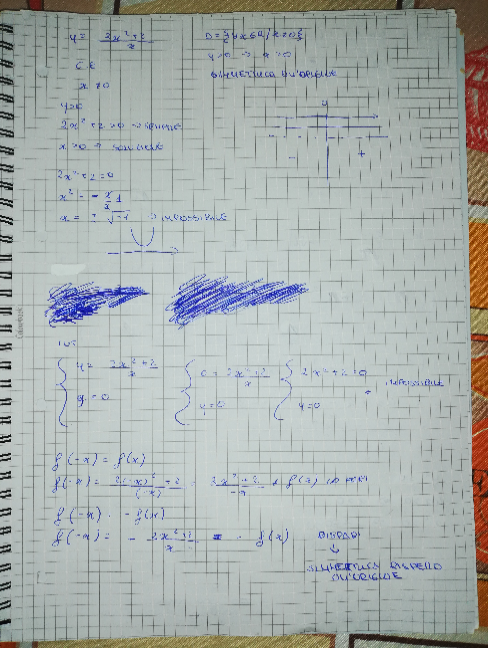 y = 2x²+2/x
D = {∀x∈R / x≠0}
y>0 → x>0
C.E
x ≠ 0
SIMMETRICA ALL'ORIGINE
y>0
y
2x²+2>0 → sempre
x>0 →
- +
2x²+2=0
x² = -2/2 1
x = ± √-1 → IMPOSSIBILE
INT
y = 2x²+2/x
y = 0
0 = 2x²+2/x
y=0
2x²+2=0
y=0
IMPOSSIBILE
f(-x) = f(x)
f(-x) = 2(-x)²+2/(-x) = 2x²+2/-x ≠ f(x)
f(-x) = -f(x)
f(-x) = - 2x²+2/x = - f(x)
DISPARI
↓
SIMMETRICA RISPETTO
ALL'ORIGINE